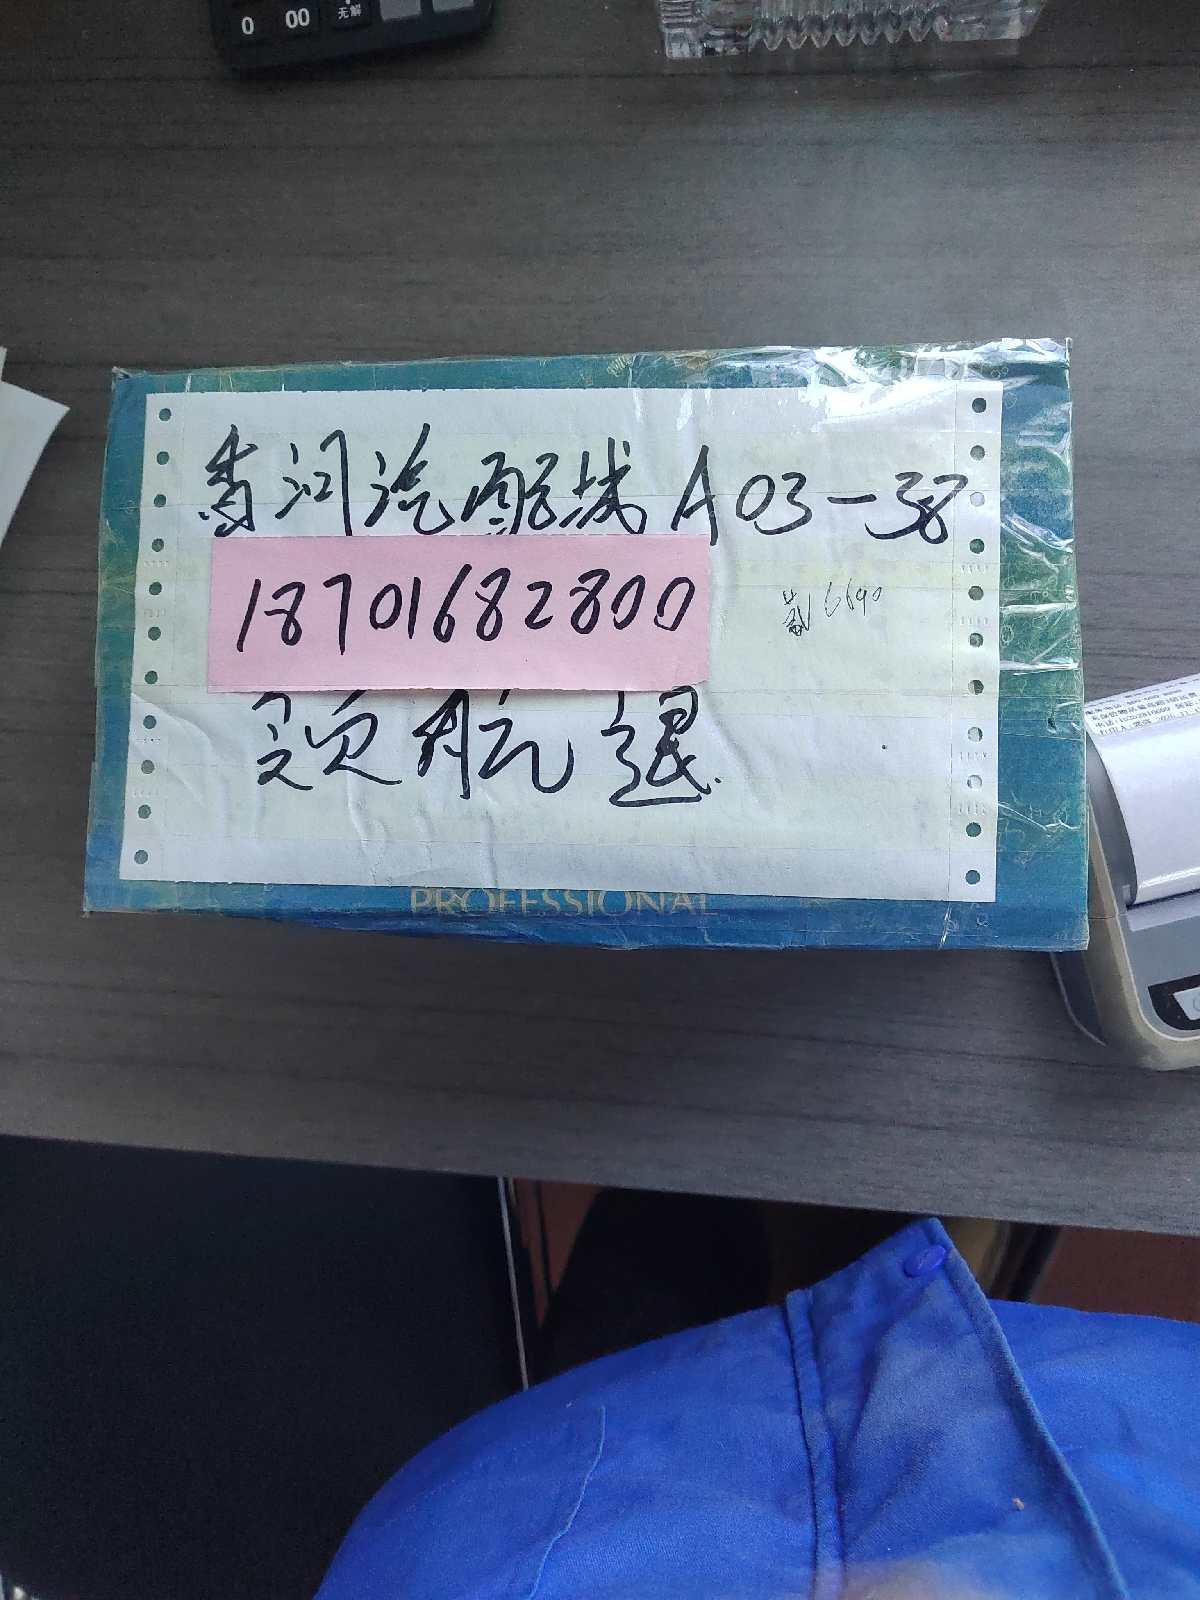 0 00 无解
香河汽配城A03-38
18701682800
戴6690
领航退
PROFESSIONAL